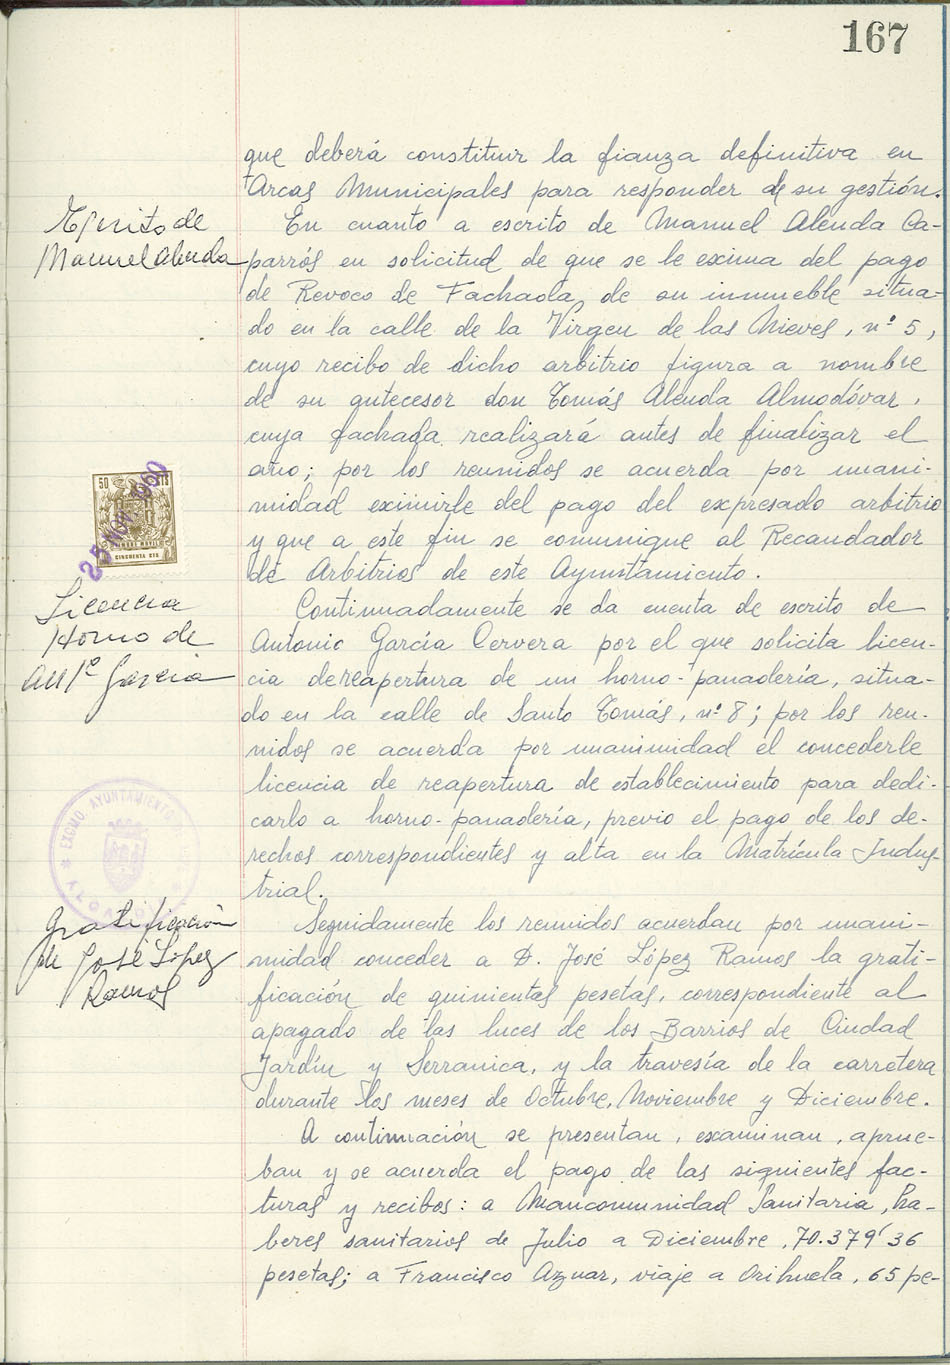 167
que deberá constituir la fianza definitiva en
Arcas Municipales para responder de su gestión.
Escrito de
Manuel Alenda
En cuanto a escrito de Manuel Alenda Ca-
parrós en solicitud de que se le exima del pago
de Revoco de Fachada, de su inmueble situa-
do en la calle de la Virgen de las Nieves, nº 5,
cuyo recibo de dicho arbitrio figura a nombre
de su antecesor don Tomás Alenda Almodóvar,
cuya fachada realizará antes de finalizar el
año; por los reunidos se acuerda por unani-
midad eximirle del pago del expresado arbitrio
y que a este fin se comunique al Recaudador
de Arbitrios de este Ayuntamiento.
50 CTS
25 NOV. 1960
TIMBRE MOVIL
CINCUENTA CTS
Licencia
Horno de
Antº García
Continuadamente se da cuenta de escrito de
Antonio García Cervera por el que solicita licen-
cia de reapertura de un horno-panadería, situa-
do en la calle de Santo Tomás, nº 8; por los reu-
nidos se acuerda por unanimidad el concederle
licencia de reapertura de establecimiento para dedi-
carlo a horno-panadería, previo el pago de los de-
rechos correspondientes y alta en la Matrícula Indus-
trial.
EXCMO. AYUNTAMIENTO DE
Gratificación
de José López
Ramos
Seguidamente los reunidos acuerdan por unani-
midad conceder a D. José López Ramos la grati-
ficación de quinientas pesetas, correspondiente al
apagado de las luces de los Barrios de Ciudad
Jardín y Serranica, y la travesía de la carretera
durante los meses de Octubre, Noviembre y Diciembre.
A continuación se presentan, examinan, aprue-
ban y se acuerda el pago de las siguientes fac-
turas y recibos: a Mancomunidad Sanitaria, ha-
beres sanitarios de Julio a Diciembre, 70.379'36
pesetas; a Francisco Aznar, viaje a Orihuela, 65 pe-